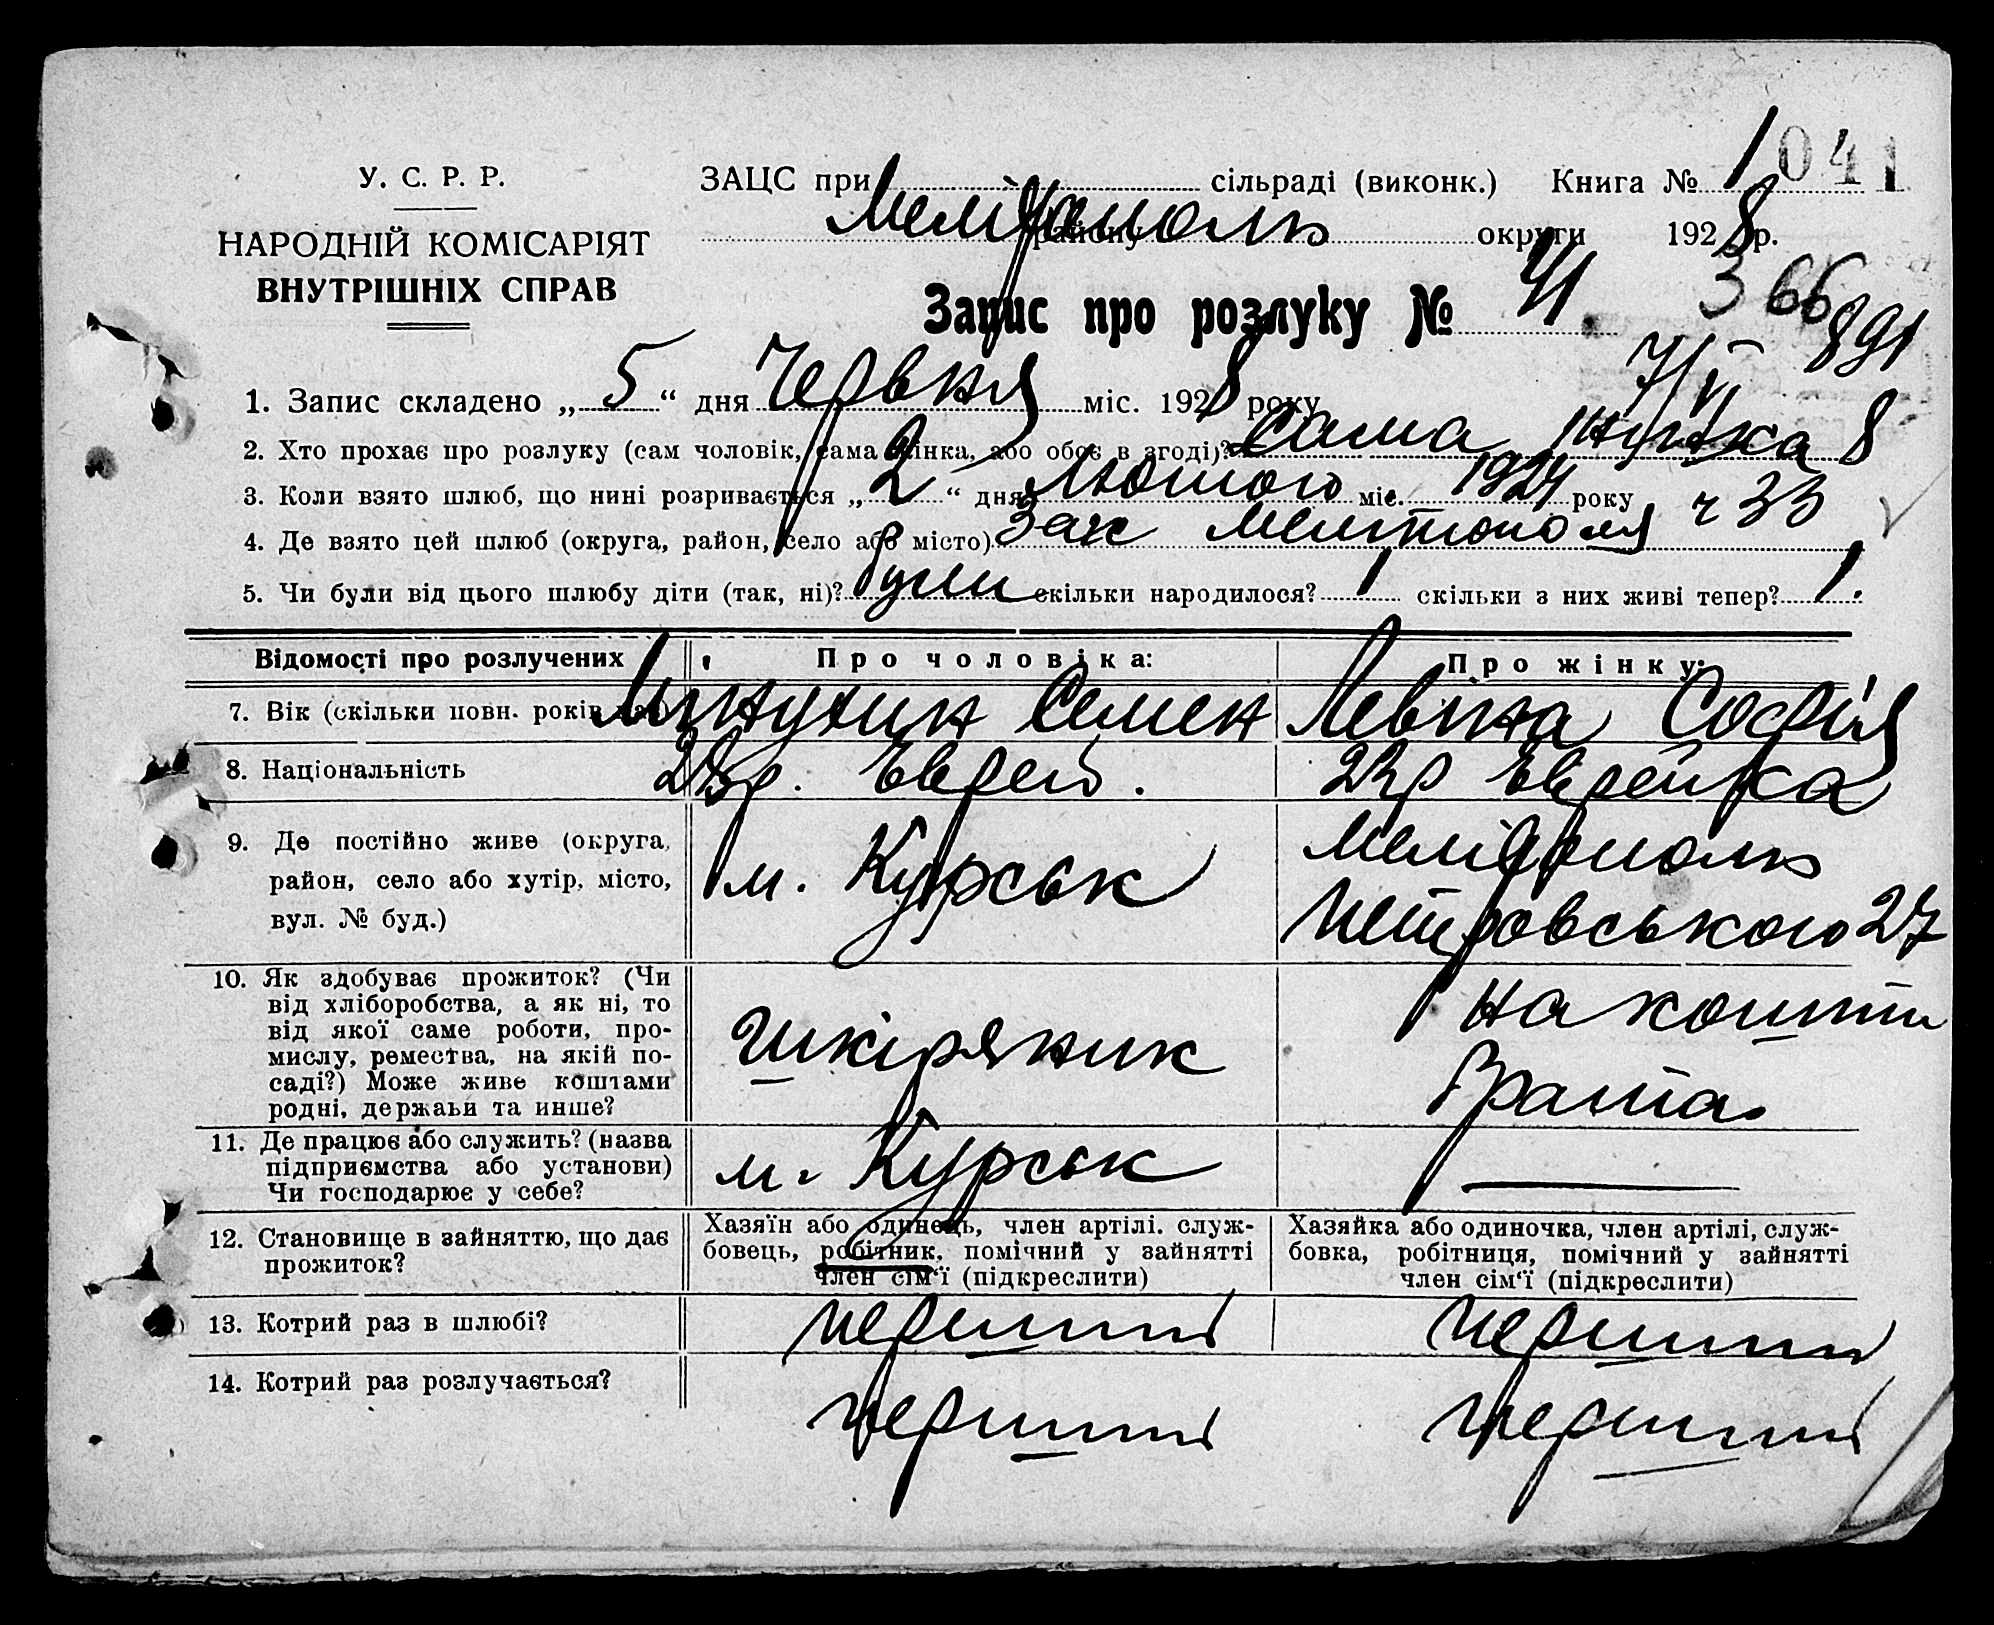 У. С. Р. Р.
НАРОДНІЙ КОМІСАРІЯТ
ВНУТРІШНІХ СПРАВ
ЗАЦС при сільраді (виконк.) Книга № 1 041
Мелітополь району округи 1928 р.
Запис про розлуку № 41.
366
891
7/VI 8
1. Запис складено „5“ дня Червня міс. 1928 року
2. Хто прохає про розлуку (сам чоловік, сама жінка, або обоє в згоді)? Сама жінка
3. Коли взято шлюб, що нині розривається „2“ дня Лютого міс. 1927 року ч 33
4. Де взято цей шлюб (округа, район, село або місто) Зак Мелітополя
5. Чи були від цього шлюбу діти (так, ні)? були скільки народилося? 1 скільки з них живі тепер? 1.
Відомості про розлучених Про чоловіка: Про жінку:
7. Вік (скільки повн. років Семен Левіна Софія
8. Національність Еврей. Еврейка
9. Де постійно живе (округа, район, село або хутір, місто, вул. № буд.)
м. Курськ
Мелітополь
Петровського 27
10. Як здобуває прожиток? (Чи
від хліборобства, а як ні, то
від якої саме роботи, про-
мислу, ремества, на якій по-
саді?) Може живе коштами
родні, держави та инше?
Шкіряник
на кошти
Брата
11. Де працює або служить? (назва
підприємства або установи)
Чи господарює у себе?
м. Курськ
12. Становище в зайняттю, що дає
прожиток?
Хазяїн або одинець, член артілі, служ-
бовець, робітник, помічний у зайнятті
член сім'ї (підкреслити)
Хазяйка або одиночка, член артілі, служ-
бовка, робітниця, помічний у зайнятті
член сім'ї (підкреслити)
13. Котрий раз в шлюбі? перший перший
14. Котрий раз розлучається? перший перший